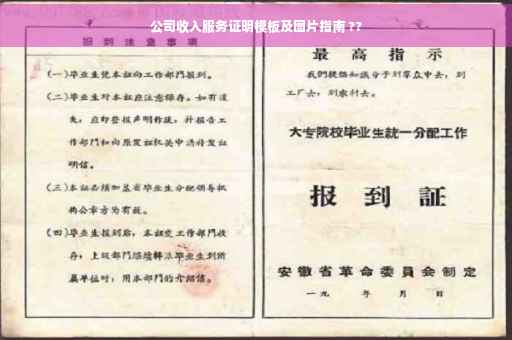 公司收入服务证明模板及图片指南??
报到注意事项
(一)毕业生凭本证向工作部门报到。
(二)毕业生对本证应注意保存。如有遗
失,应即登报声明作废,并报告工
作部门和向原发证机关申请补发证
明信。
(三)本证必须加盖省毕业生分配领导机
构公章方为有效。
(四)毕业生报到后,本证交工作部门收
存;上级部门继续转派毕业生到所
属单位时,用本部门的介绍信。
最高指示
我们提倡知识分子到群众中去,到
工厂去,到农村去。
大专院校毕业生统一分配工作
报到证
安徽省革命委员会制定
一九 年 月 日